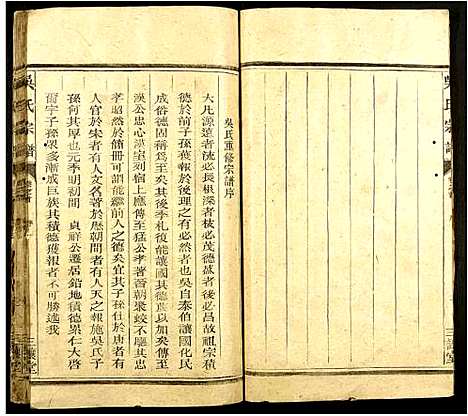 吳氏宗譜
三讓堂
吳氏重修宗譜序
大凡源遠者流必長根深者枝必茂德盛者後必昌故祖宗積
德於前子孫獲報於後理之有必然者也吳自泰伯讓國化民
成俗德固為至矣其後季札復能讓國其德為何如矣傳至
漢公忠心漢室列宿上應傳至猛公孝著晉朝聚蚊不驅忠
孝昭然於簡冊可謂能繼前人之德矣宜其子孫仕於唐者有
人官於宋者有人以至於歷朝間者有人天之報施吳氏子
孫何其厚也元季明初間 貞祥公遷居錯地積德累仁大啓
爾宇子孫眾多漸成巨族其積德獲報者不可勝述我
吳氏宗譜
三讓堂